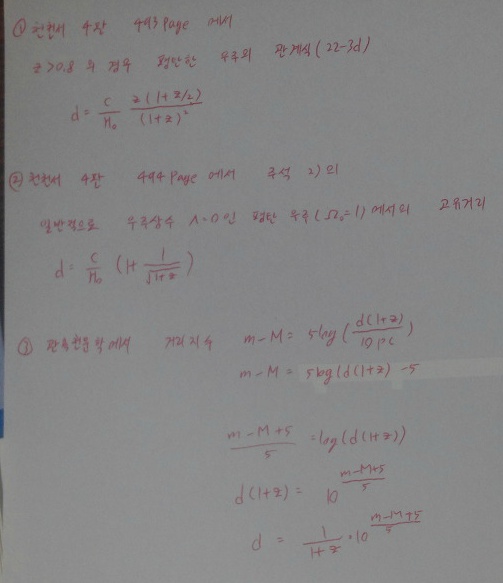 ① 천천서 4장 493 Page 에서
z>0.8 의 경우 평탄한 우주의 관계식 (22-3d)
d = \frac{c}{H_0} \frac{z(1+z/2)}{(1+z)^2}
② 천천서 4장 494 Page 에서 주석 2)의
일반적으로 우주상수 Λ=0인 평탄 우주(Ω₀=1)에서의 고유거리
d = \frac{c}{H_0} (1+ \frac{1}{\sqrt{1+z}})
① 관측천문학에서 거리지수 m-M = 5log(\frac{d(1+z)}{10pc})
m-M = 5log(d(1+z) -5
\frac{m-M+5}{5} = log(d(1+z))
d(1+z) = 10^{\frac{m-M+5}{5}}
d = \frac{1}{1+z} · 10^{\frac{m-M+5}{5}}